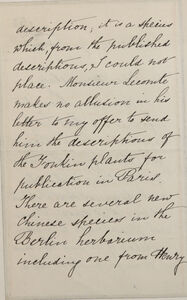 description, it is a species
which, from the published
descriptions, I could not
place. Monsieur Lecomte
makes no allusion in his
letter to my offer to send
him the descriptions of
the Tonkin plants for
publication in Paris.
There are several new
Chinese species in the
Berlin herbarium
including one from Henry